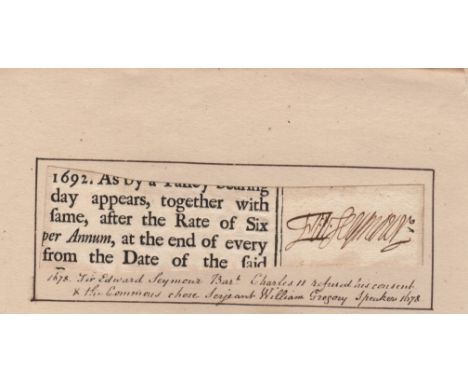 1692. As by a Talley bearing
day appears, together with
same, after the Rate of Six
per Annum, at the end of every
from the Date of the said
Ed: Seymour
1678. Sir Edward Seymour Bart. Charles II refused his consent
& the Commons chose Serjeant William Gregory Speaker 1678